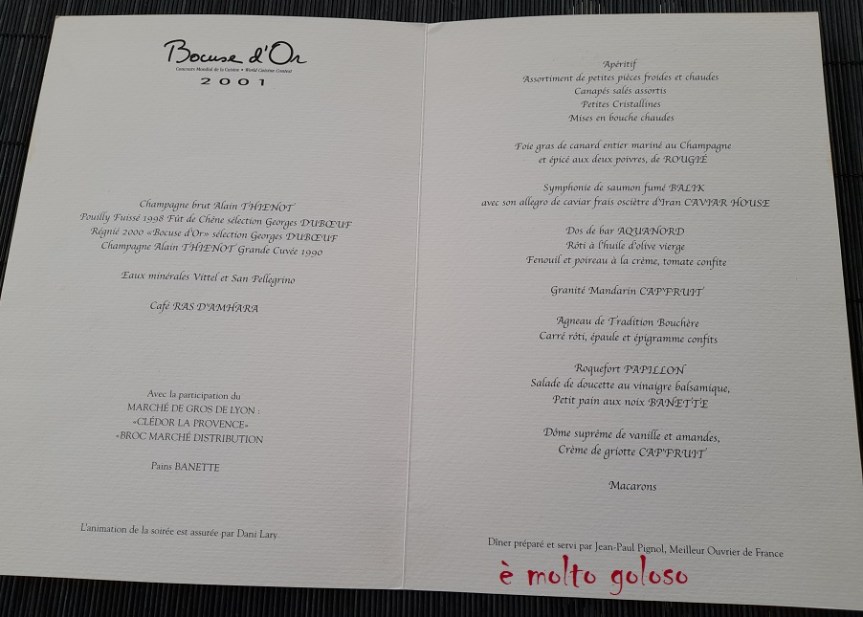 Bocuse d'Or
Concours Mondial de la Cuisine • World Cuisine Contest
2001
Champagne brut Alain THIENOT
Pouilly Fuissé 1998 Fût de Chêne sélection Georges DUBŒUF
Régnié 2000 «Bocuse d'Or» sélection Georges DUBŒUF
Champagne Alain THIENOT Grande Cuvée 1990
Eaux minérales Vittel et San Pellegrino
Café RAS D'AMHARA
Avec la participation du
MARCHÉ DE GROS DE LYON :
«CLÉDOR LA PROVENCE»
«BROC MARCHÉ DISTRIBUTION
Pains BANETTE
L'animation de la soirée est assurée par Dani Lary.
Apéritif
Assortiment de petites pièces froides et chaudes
Canapés salés assortis
Petites Cristallines
Mises en bouche chaudes
Foie gras de canard entier mariné au Champagne
et épicé aux deux poivres, de ROUGIÉ
Symphonie de saumon fumé BALIK
avec son allegro de caviar frais osciètre d'Iran CAVIAR HOUSE
Dos de bar AQUANORD
Rôti à l'huile d'olive vierge
Fenouil et poireau à la crème, tomate confite
Granité Mandarin CAP'FRUIT
Agneau de Tradition Bouchère
Carré rôti, épaule et épigramme confits
Roquefort PAPILLON
Salade de doucette au vinaigre balsamique,
Petit pain aux noix BANETTE
Dôme suprême de vanille et amandes,
Crème de griotte CAP'FRUIT
Macarons
Dîner préparé et servi par Jean-Paul Pignol, Meilleur Ouvrier de France
è molto goloso